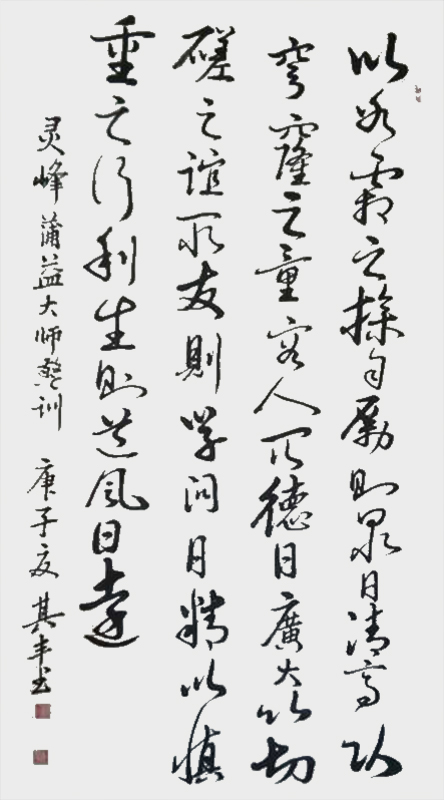 以冰霜之操自勵则品日清高以
穹窿之量容人则德日廣大以切
磋之誼取友則學问日精以慎
重之行利生则道风日遠
灵峰蒲益大师警训 庚子夏 其丰书